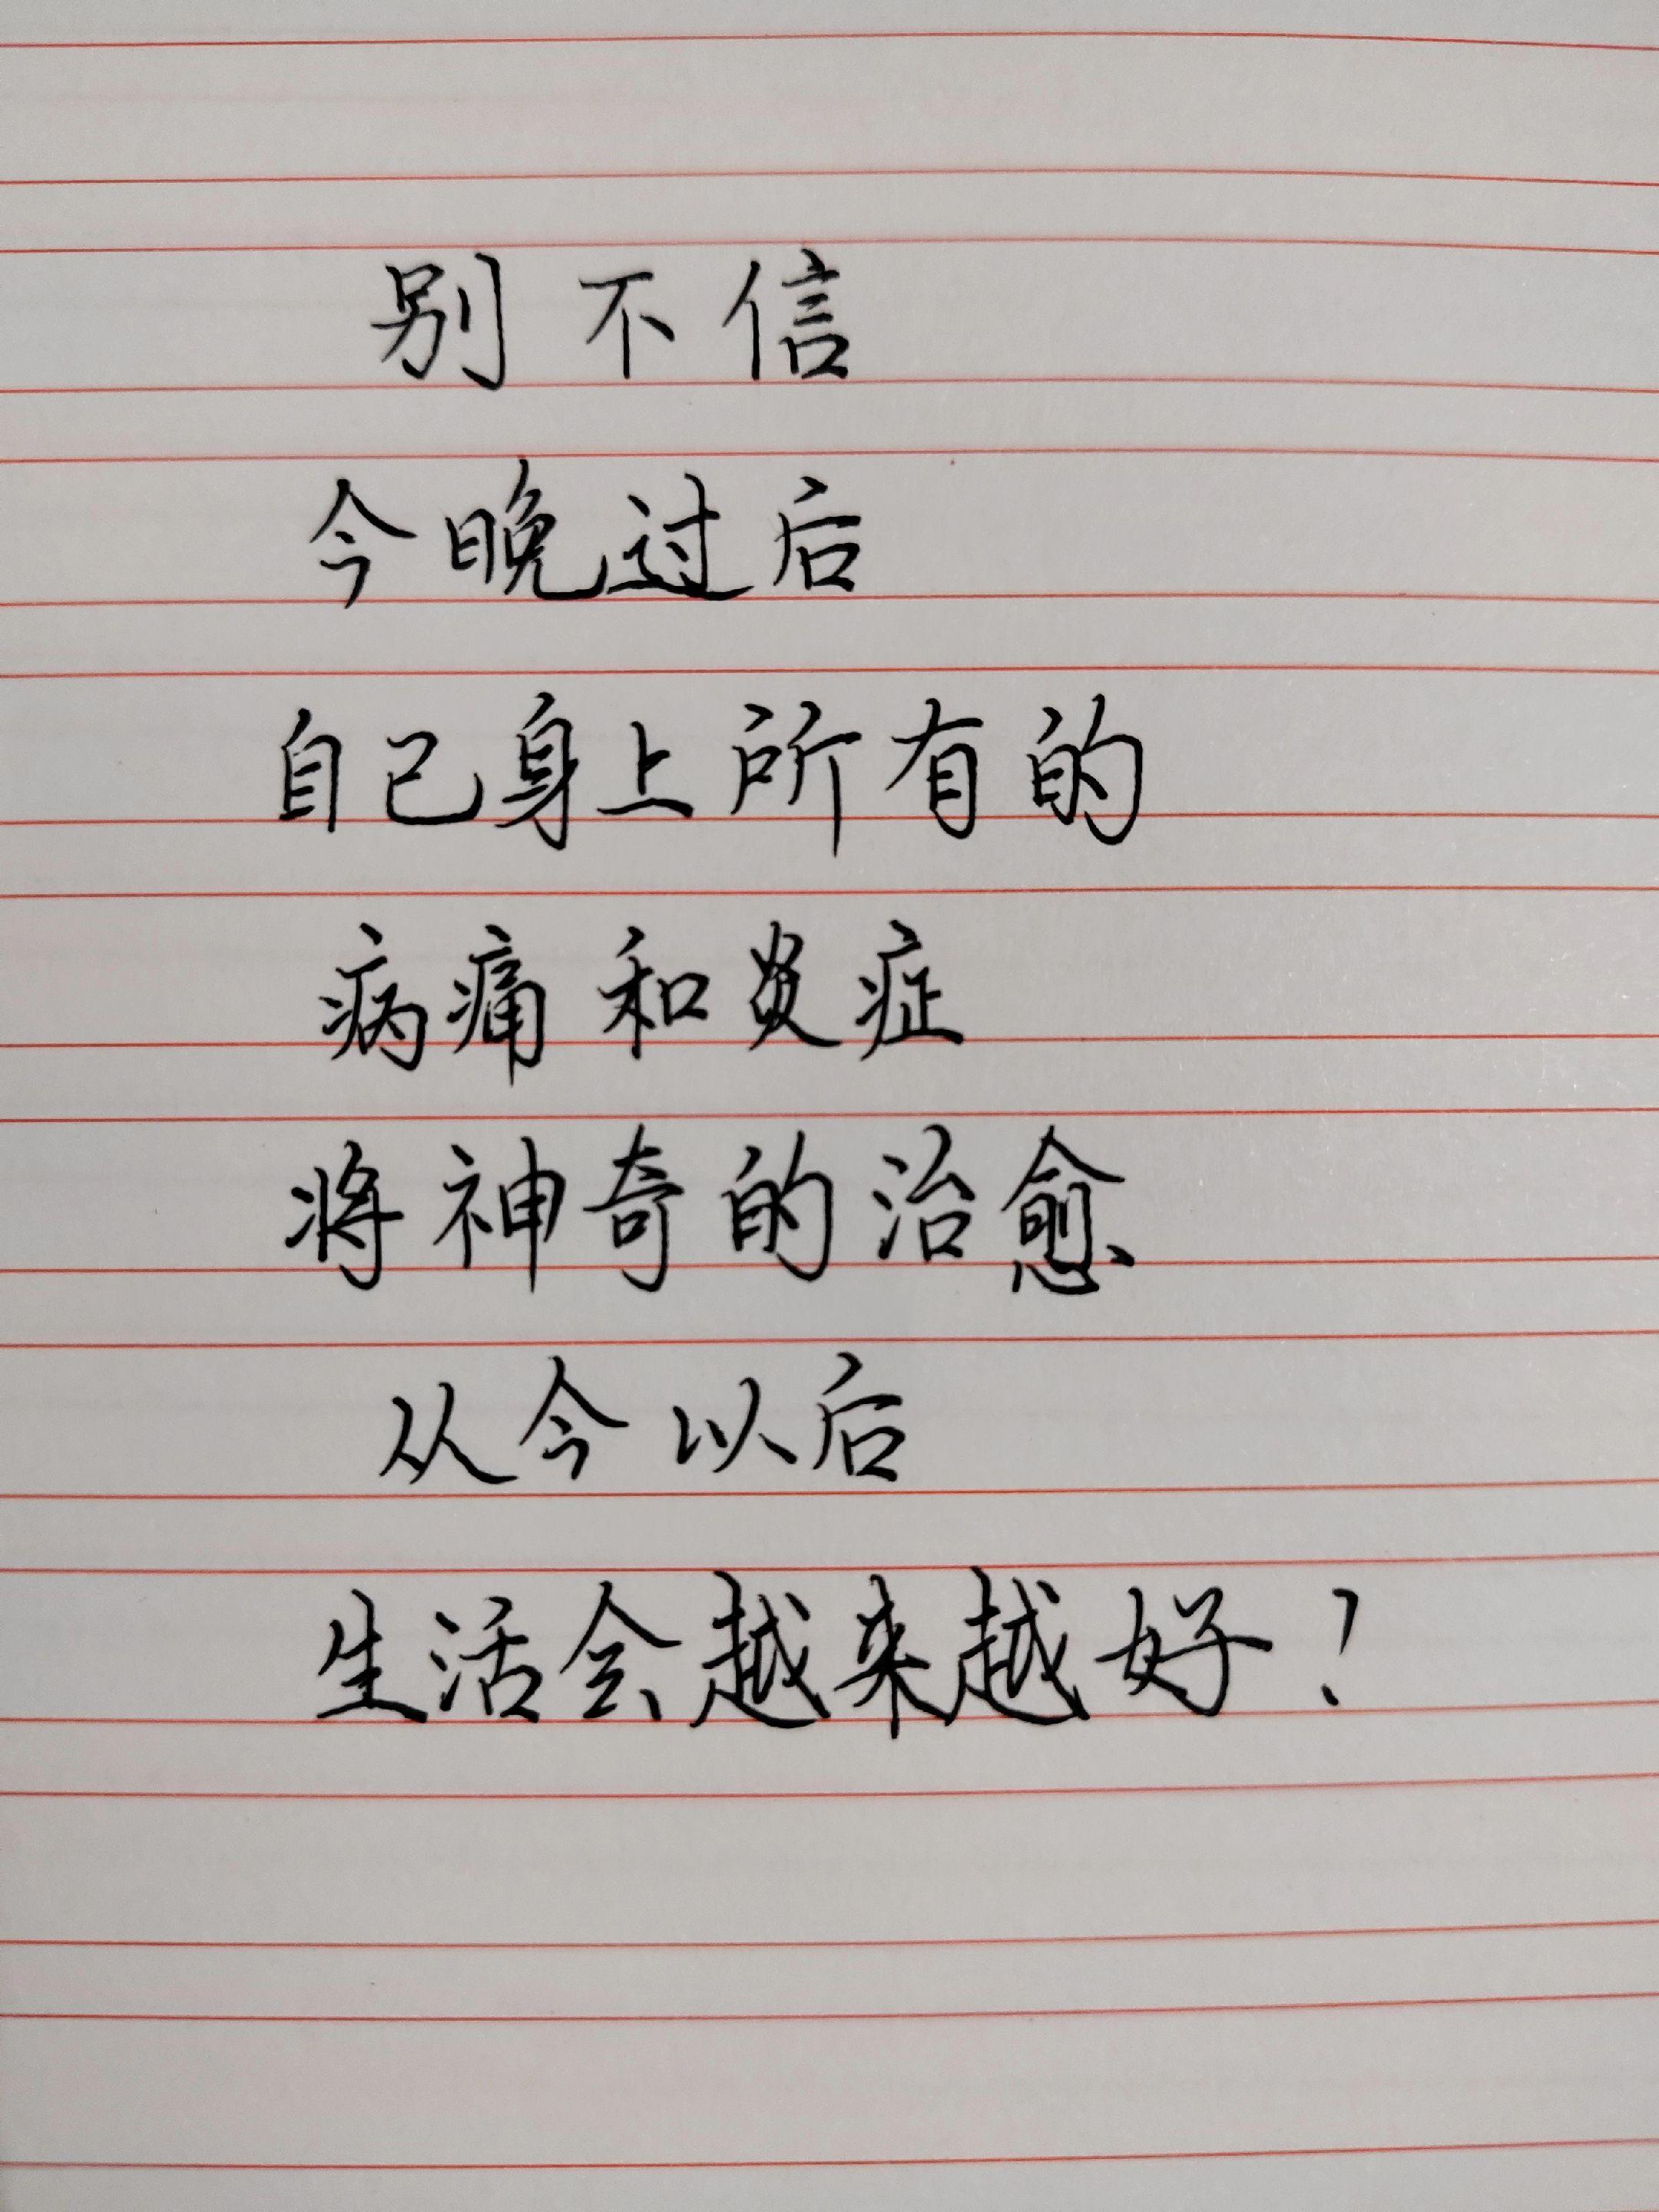 别不信
今晚过后
自己身上所有的
病痛和炎症
将神奇的治愈
从今以后
生活会越来越好！